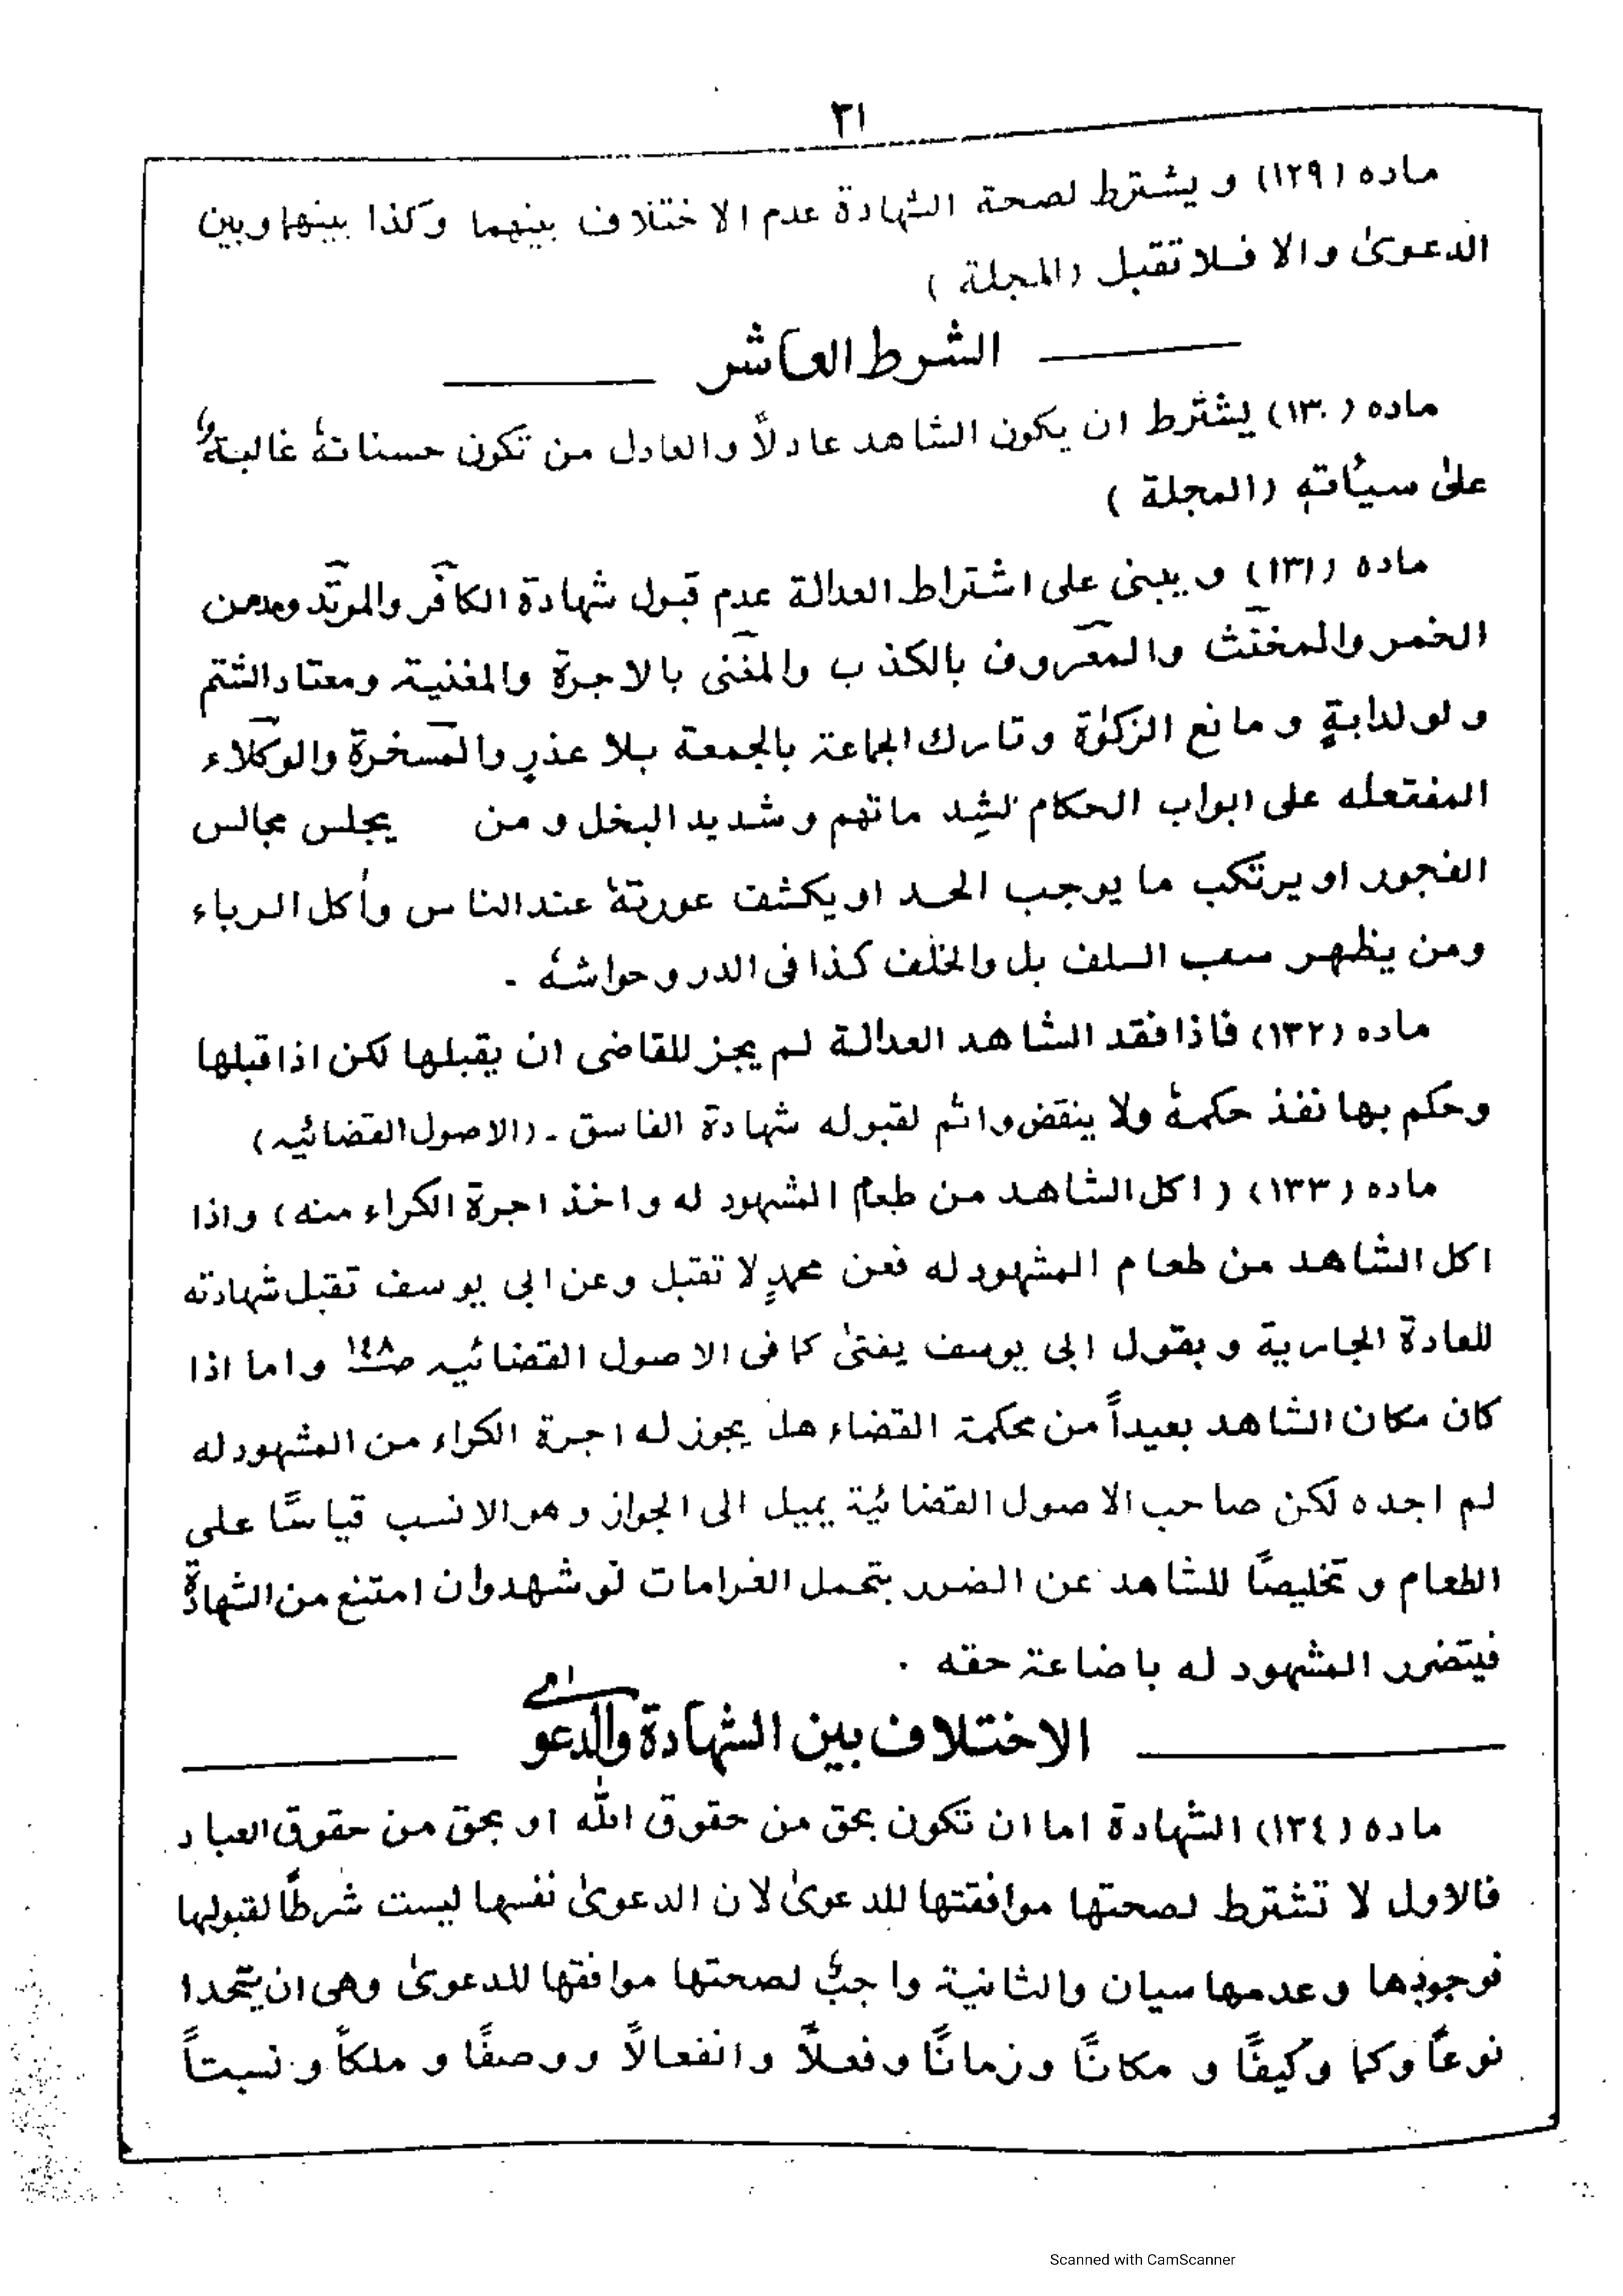 ٣١
ماده (١٢٩) و يشترط لصحة الشهادة عدم الاختلاف بينهما وكذا بينها وبين
الدعوىٰ والا فلا تقبل (المجلة)
الشرط العاشر
ماده (١٣٠) يشترط ان يكون الشاهد عادلاً والعادل من تكون حسناتهٗ غالبة
علىٰ سيأته (المجلة)
ماده (١٣١) و يبنى على اشتراط العدالة عدم قبول شهادة الكافر والمرتد ومدمن
الخمر والمخنث والمعروف بالكذب والمغنى بالاجرة والمغنية ومعتاد الشتم
ولو لدابةٍ و مانع الزكوٰة و تارك الجماعة بالجمعة بلا عذرٍ والمسخرة والوكلاء
المفتعله على ابواب الحكام لشِد ماتهم و شديد البخل و من يجلس مجالس
الفجور او يرتكب ما يوجب الحد او يكشف عورتهٗ عند الناس وأكل الرباء
ومن يظهر سب السلف بل والخلف كذا فى الدر و حواشهٗ ـ
ماده (١٣٢) فاذا فقد الشاهد العدالة لم يجز للقاضى ان يقبلها لكن اذا قبلها
وحكم بها نفذ حكمهٗ ولا ينقض واثم لقبوله شهادة الفاسق ـ (الاصول القضائيه)
ماده (١٣٣) (اكل الشاهد من طعام المشهود له و اخذ اجرة الكراء منه) واذا
اكل الشاهد من طعام المشهود له فعن محمدٍ لا تقبل وعن ابى يوسف تقبل شهادته
للعادة الجارية و بقول ابى يوسف يفتىٰ كما فى الاصول القضائيه صـ١٤٨ واما اذا
كان مكان الشاهد بعيداً من محكمة القضاء هل يجوز له اجرة الكراء من المشهود له
لم اجده لكن صاحب الاصول القضائية يميل الى الجواز وهو الانسب قياسًا على
الطعام و تخليصًا للشاهد عن الضرر بتحمل الغرامات لو شهد وان امتنع من الشهادة
فيتضرر المشهود له باضاعة حقه .
الاختلاف بين الشهادة والدعوے
ماده (١٣٤) الشهادة اما ان تكون بحق من حقوق الله او بحق من حقوق العباد
فالاول لا تشترط لصحتها موافقتها للدعوىٰ لان الدعوىٰ نفسها ليست شرطًا لقبولها
فوجودها وعدمها سيان والثانية واجبٌ لصحتها موافقها للدعوىٰ وهى ان يتحدا
نوعاً وكما وكيفًا و مكانًا وزمانًا وفعلًا وانفعالاً ووصفًا و ملكاً و نسبتاً
Scanned with CamScanner